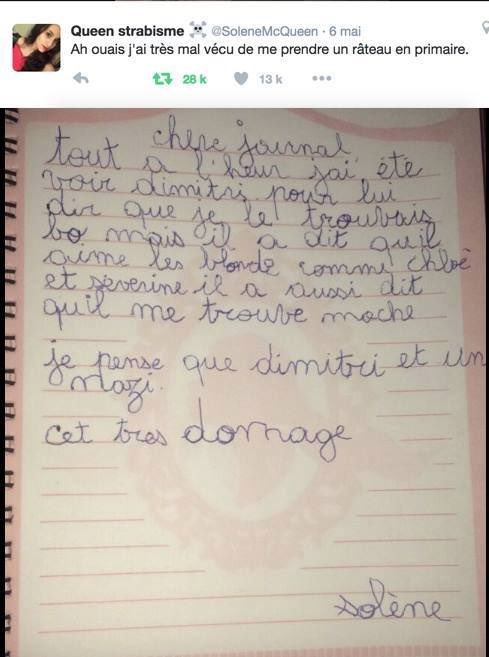 Queen strabisme ☠ @SoleneMcQueen · 6 mai
Ah ouais j'ai très mal vécu de me prendre un râteau en primaire.
28 k 13 k
chere journal
tout a l'heur j'ai été
voir dimitri pour lui
dir que je le trouvais
bo mais il a dit quil
aime les blonde comme chloè
et severine il a aussi dit
quil me trouve moche
je pense que dimitri et un
nazi.
cet tres domage
solène